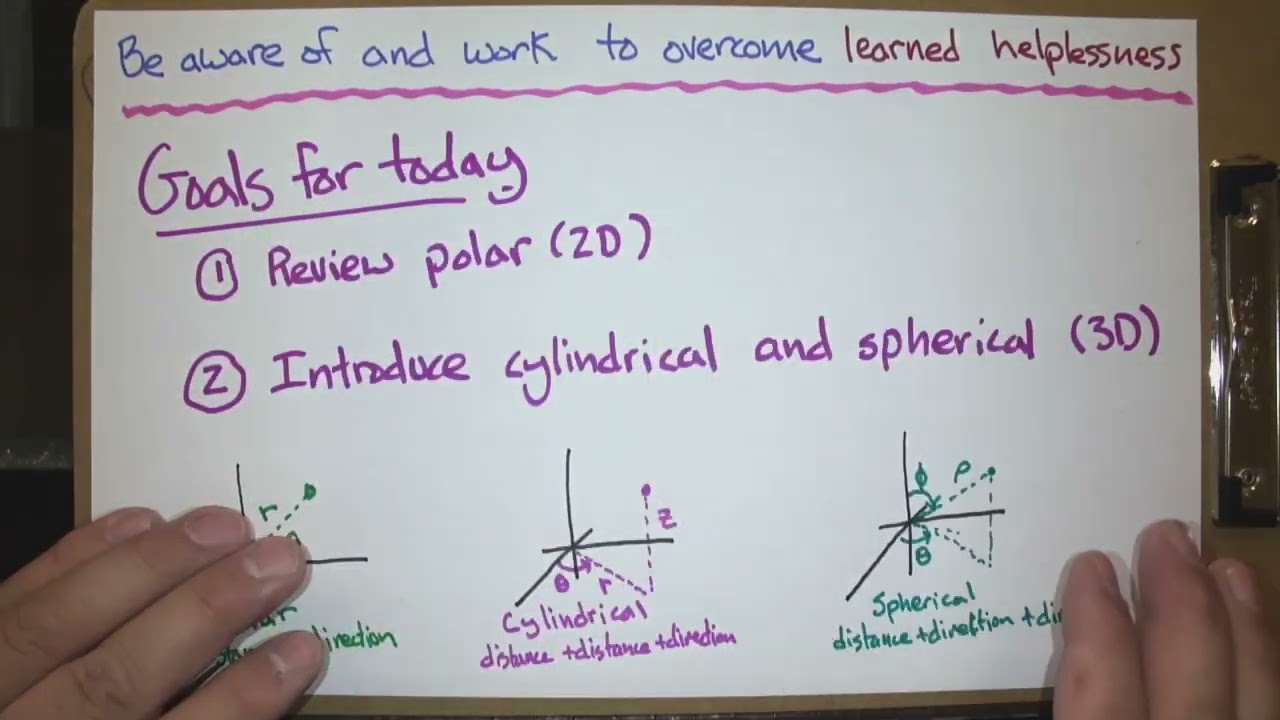 Be aware of and work to overcome learned helplessness
Goals for today
① Review polar (2D)
② Introduce cylindrical and spherical (3D)
r
z
θ
r
Cylindrical
distance + distance + direction
ϕ
ρ
θ
Spherical
distance + direction +